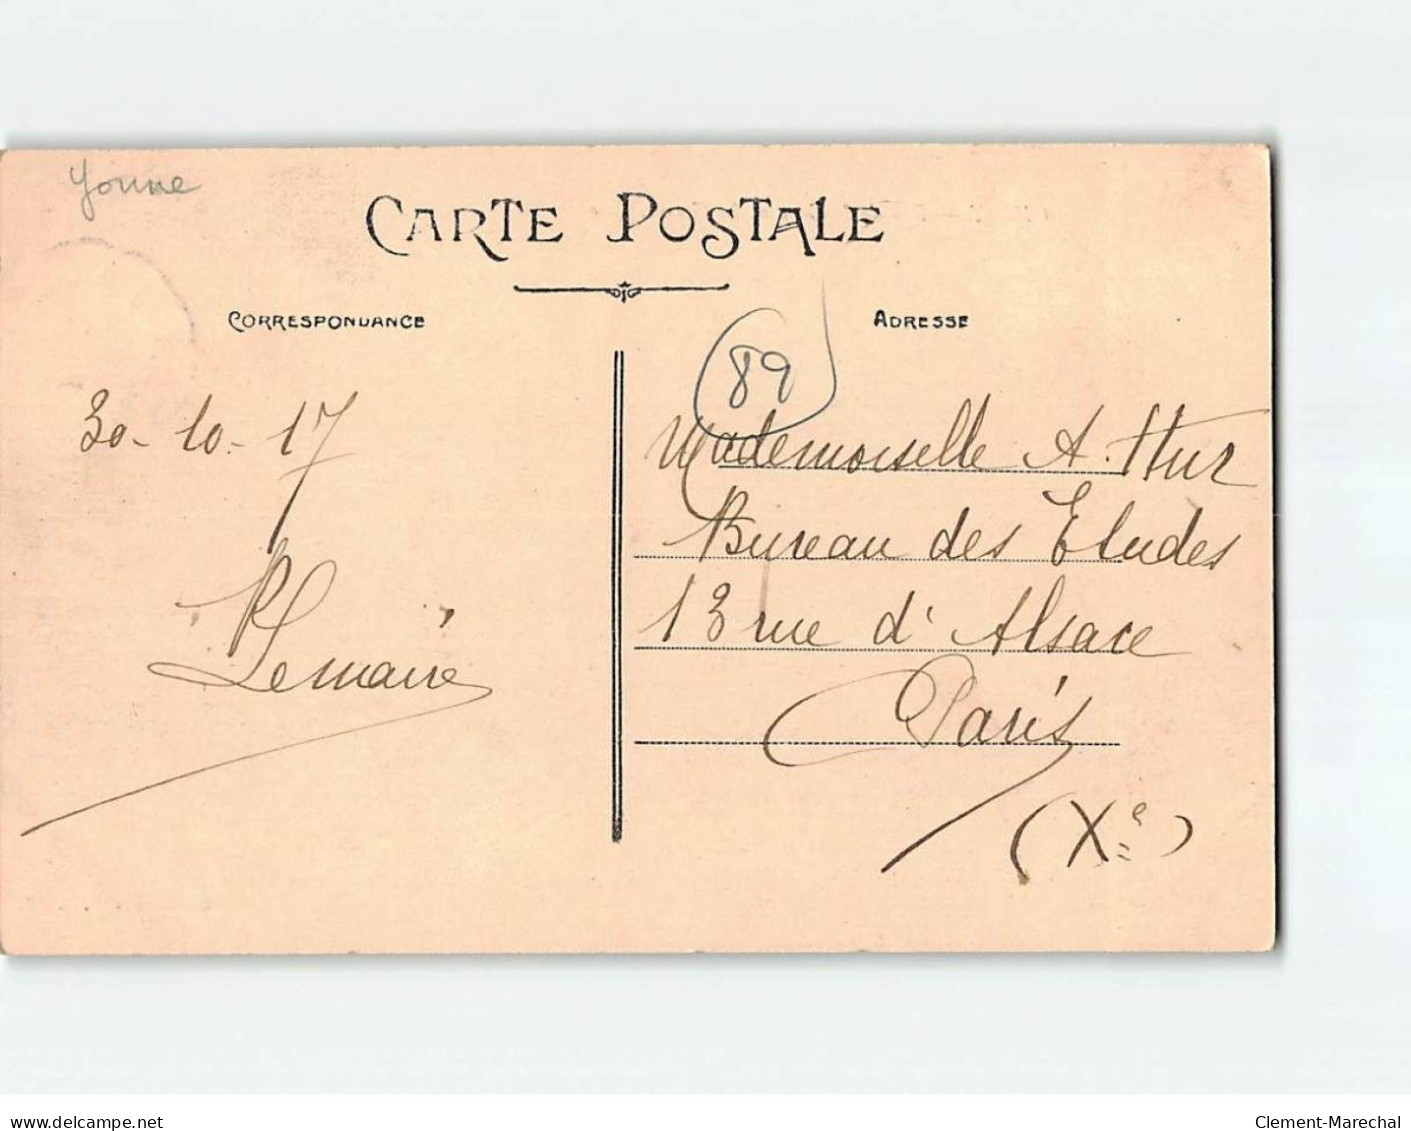 Yonne
CARTE POSTALE
CORRESPONDANCE
ADRESSE
89
30-10-17
Lemaire
Mademoiselle A. Hur
Bureau des Etudes
13 rue d'Alsace
Paris
(Xe)
www.delcampe.net
Clement-Marechal